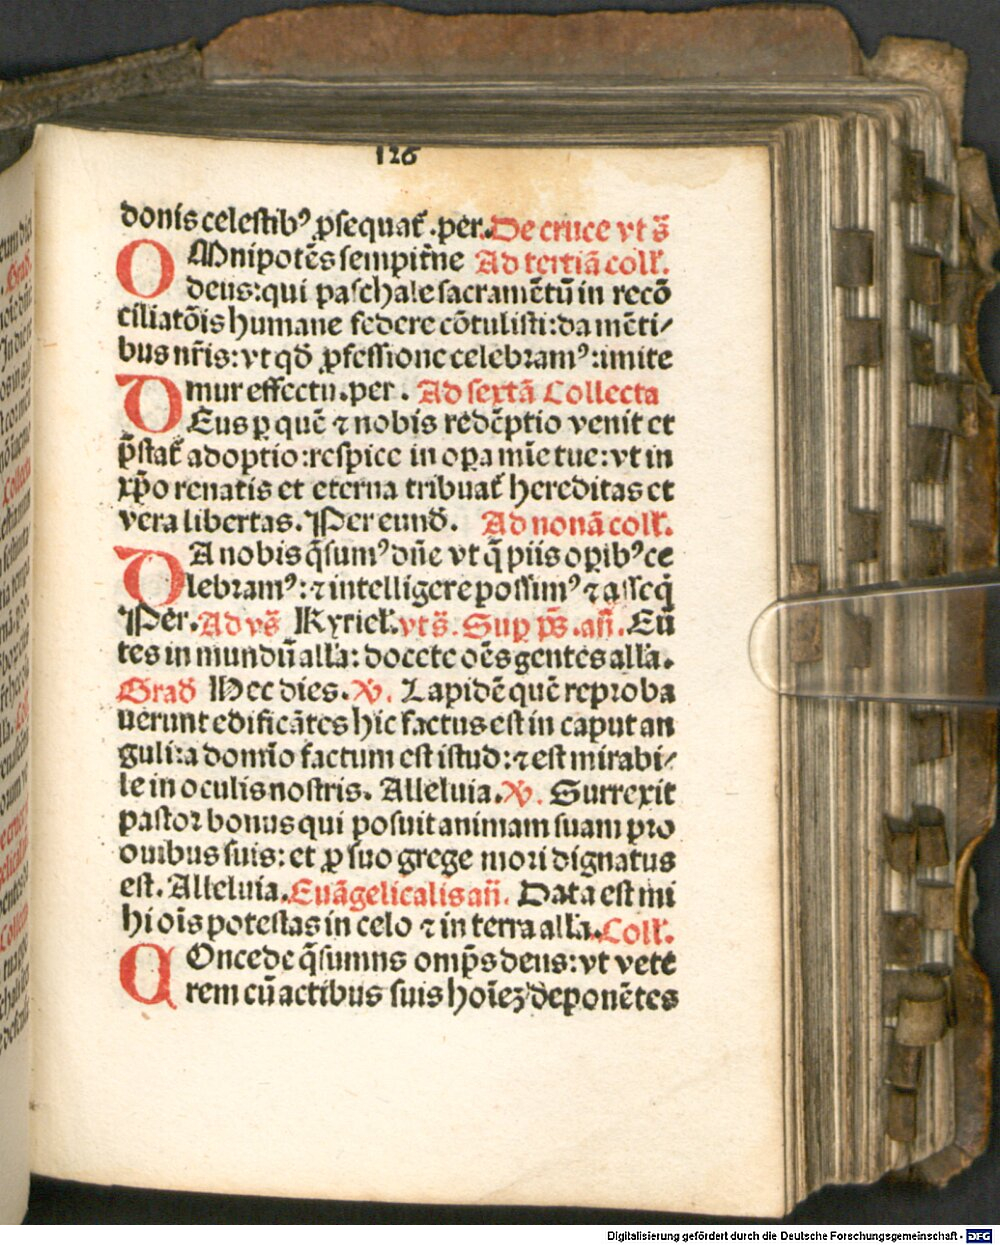 126
donis celestibꝰ ꝓsequat᷑ .per. De cruce vt s̃
OMnipotēs sempit̃ne Ad tertiā coll᷑.
deus:qui paschale sacramētū in recō
ciliatōis humane federe cōtulisti:da mēti⸗
bus nr̃is:vt qđ ꝓfessione celebramꝰ:imite
mur effectu.per. Ad sextā Collecta
DEus ꝑ quē ⁊ nobis redēptio venit et
p̄stat᷑ adoptio:respice in oꝑa mīe tue:vt in
xp̄o renatis et eterna tribuat᷑ hereditas et
vera libertas. Per eund̄. Ad nonā coll᷑.
DA nobis q̄sumꝰ dn̄e vt q̄ piis oꝑibꝰ ce
lebramꝰ:⁊ intelligere possimꝰ ⁊ asseq̄
Per. Ad vs̄ Kyriel᷑. vt s̃. Suꝑ ps̄. an̄. Eū
tes in mundū all̄a: docete oēs gentes all̄a.
Grad̄ Hec dies. ℣. Lapidē quē reproba
uerunt edificātes hic factus est in caput an
guli:a domīo factum est istud:⁊ est mirabi⸗
le in oculis nostris. Alleluia. ℣. Surrexit
pastor bonus qui posuit animam suam pro
ouibus suis: et ꝓ suo grege mori dignatus
est. Alleluia. Euāgelicalis an̄. Data est mi
hi oīs potestas in celo ⁊ in terra all̄a. Coll᷑.
COncede q̄sumus omp̄s deus:vt vete
rem cū actibus suis hoīeꝫ deponētes
Digitalisierung gefördert durch die Deutsche Forschungsgemeinschaft - DFG